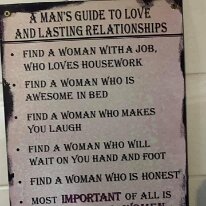 A MAN'S GUIDE TO LOVE
AND LASTING RELATIONSHIPS
• FIND A WOMAN WITH A JOB,
WHO LOVES HOUSEWORK
• FIND A WOMAN WHO IS
AWESOME IN BED
• FIND A WOMAN WHO MAKES
YOU LAUGH
• FIND A WOMAN WHO WILL
WAIT ON YOU HAND AND FOOT
• FIND A WOMAN WHO IS HONEST
MOST IMPORTANT OF ALL IS
WOMEN